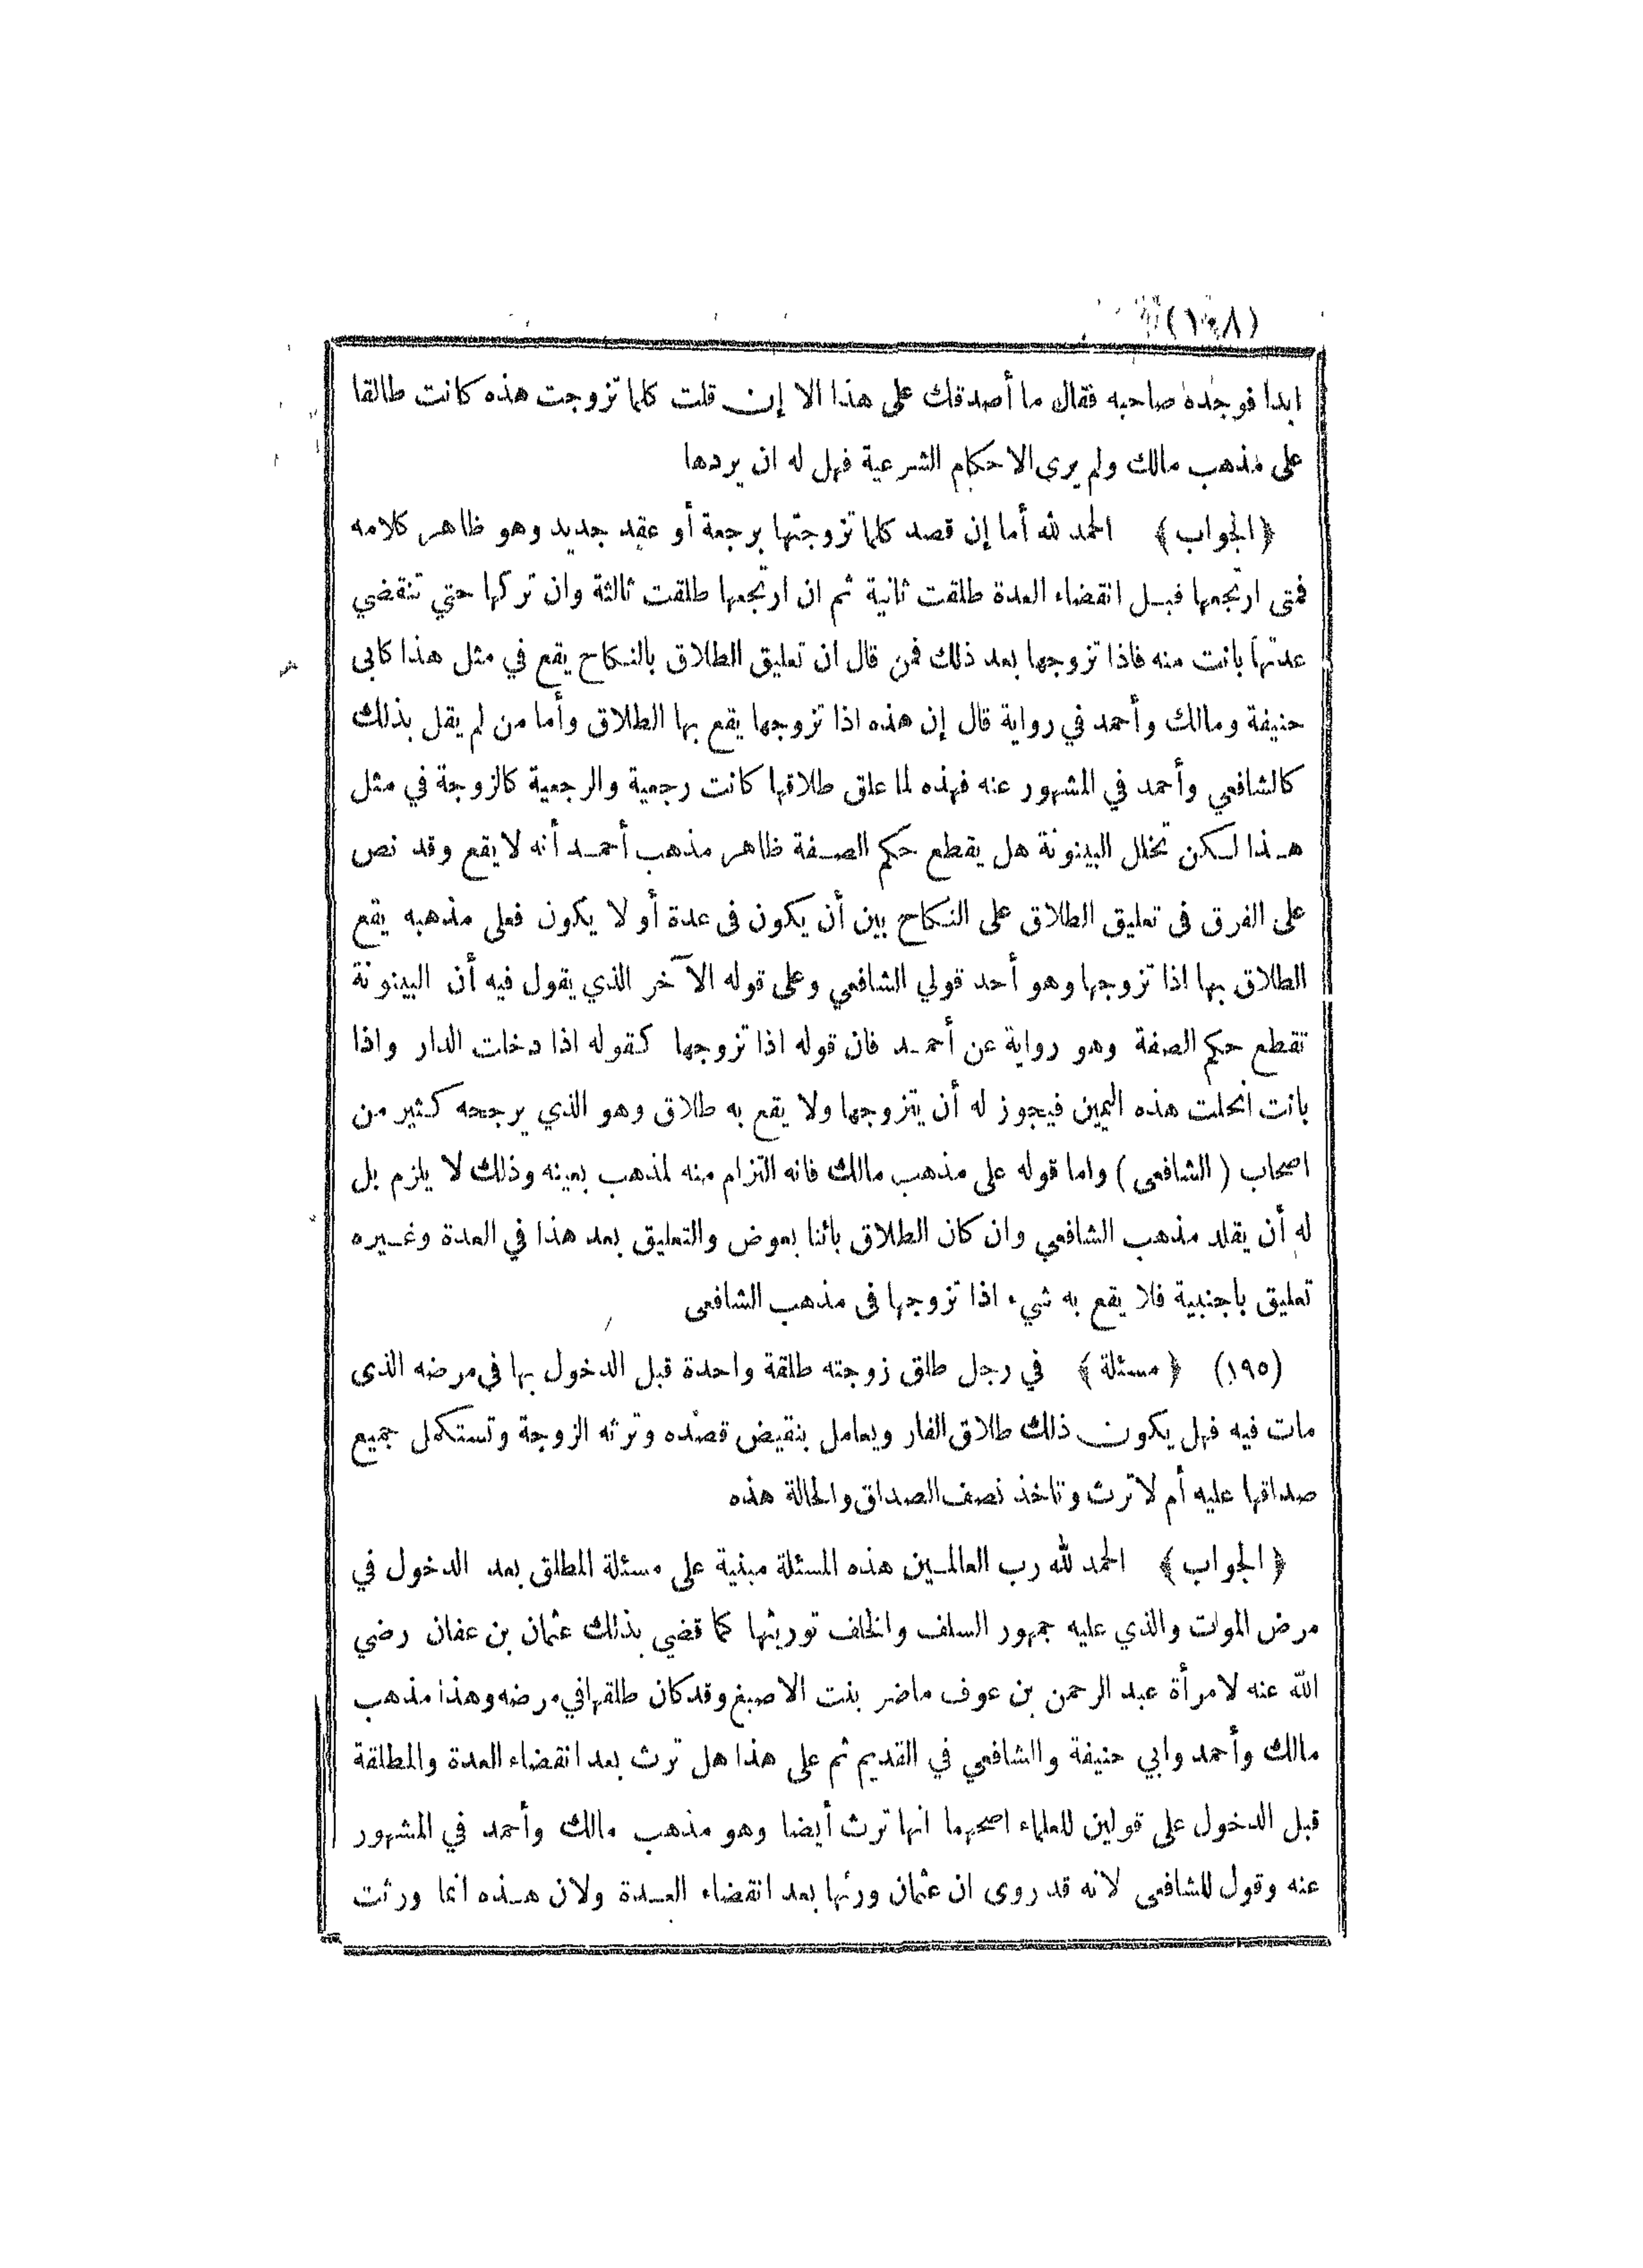 (١٠٨)
ابدا فوجده صاحبه فقال ما أصدقك على هذا الا إن قلت كلما تزوجت هذه كانت طالقا
على مذهب مالك ولم يرى الاحكام الشرعية فهل له ان يردها
﴿الجواب﴾ الحمد لله أما إن قصد كلما تزوجتها برجعة أو عقد جديد وهو ظاهر كلامه
فمتى ارتجعها قبل انقضاء العدة طلقت ثانية ثم ان ارتجعها طلقت ثالثة وان تركها حتي تنقضي
عدتها بانت منه فاذا تزوجها بعد ذلك فمن قال ان تعليق الطلاق بالنكاح يقع في مثل هذا كابى
حنيفة ومالك وأحمد في رواية قال إن هذه اذا تزوجها يقع بها الطلاق وأما من لم يقل بذلك
كالشافعي وأحمد في المشهور عنه فهذه لما علق طلاقها كانت رجعية والرجعية كالزوجة في مثل
هذا لكن تخلل البينونة هل يقطع حكم الصفة ظاهر مذهب أحمد أنه لا يقع وقد نص
على الفرق فى تعليق الطلاق على النكاح بين أن يكون فى عدة أو لا يكون فعلى مذهبه يقع
الطلاق بها اذا تزوجها وهو أحد قولي الشافعي وعلى قوله الآخر الذي يقول فيه أن البينونة
تقطع حكم الصفة وهو رواية عن أحمد فان قوله اذا تزوجها كقوله اذا دخلت الدار واذا
بانت انحلت هذه اليمين فيجوز له أن يتزوجها ولا يقع به طلاق وهو الذي يرجحه كثير من
اصحاب (الشافعى) واما قوله على مذهب مالك فانه التزام منه لمذهب بعينه وذلك لا يلزم بل
له أن يقلد مذهب الشافعي وان كان الطلاق بائنا بعوض والتعليق بعد هذا في العدة وغيره
تعليق باجنبية فلا يقع به شيء اذا تزوجها فى مذهب الشافعى
(١٩٥) ﴿مسئلة﴾ في رجل طلق زوجته طلقة واحدة قبل الدخول بها فى مرضه الذى
مات فيه فهل يكون ذلك طلاق الفار ويعامل بنقيض قصده وترثه الزوجة وتستكمل جميع
صداقها عليه أم لا ترث وتاخذ نصف الصداق والحالة هذه
﴿الجواب﴾ الحمد لله رب العالمين هذه المسئلة مبنية على مسئلة المطلق بعد الدخول في
مرض الموت والذي عليه جمهور السلف والخلف توريثها كما قضي بذلك عثمان بن عفان رضي
الله عنه لامرأة عبد الرحمن بن عوف ماضر بنت الاصبغ وقد كان طلقها في مرضه وهذا مذهب
مالك وأحمد وابي حنيفة والشافعي في القديم ثم على هذا هل ترث بعد انقضاء العدة والمطلقة
قبل الدخول على قولين للعلماء اصحهما انها ترث أيضا وهو مذهب مالك وأحمد في المشهور
عنه وقول للشافعى لانه قد روى ان عثمان ورثها بعد انقضاء العدة ولان هذه انما ورثت